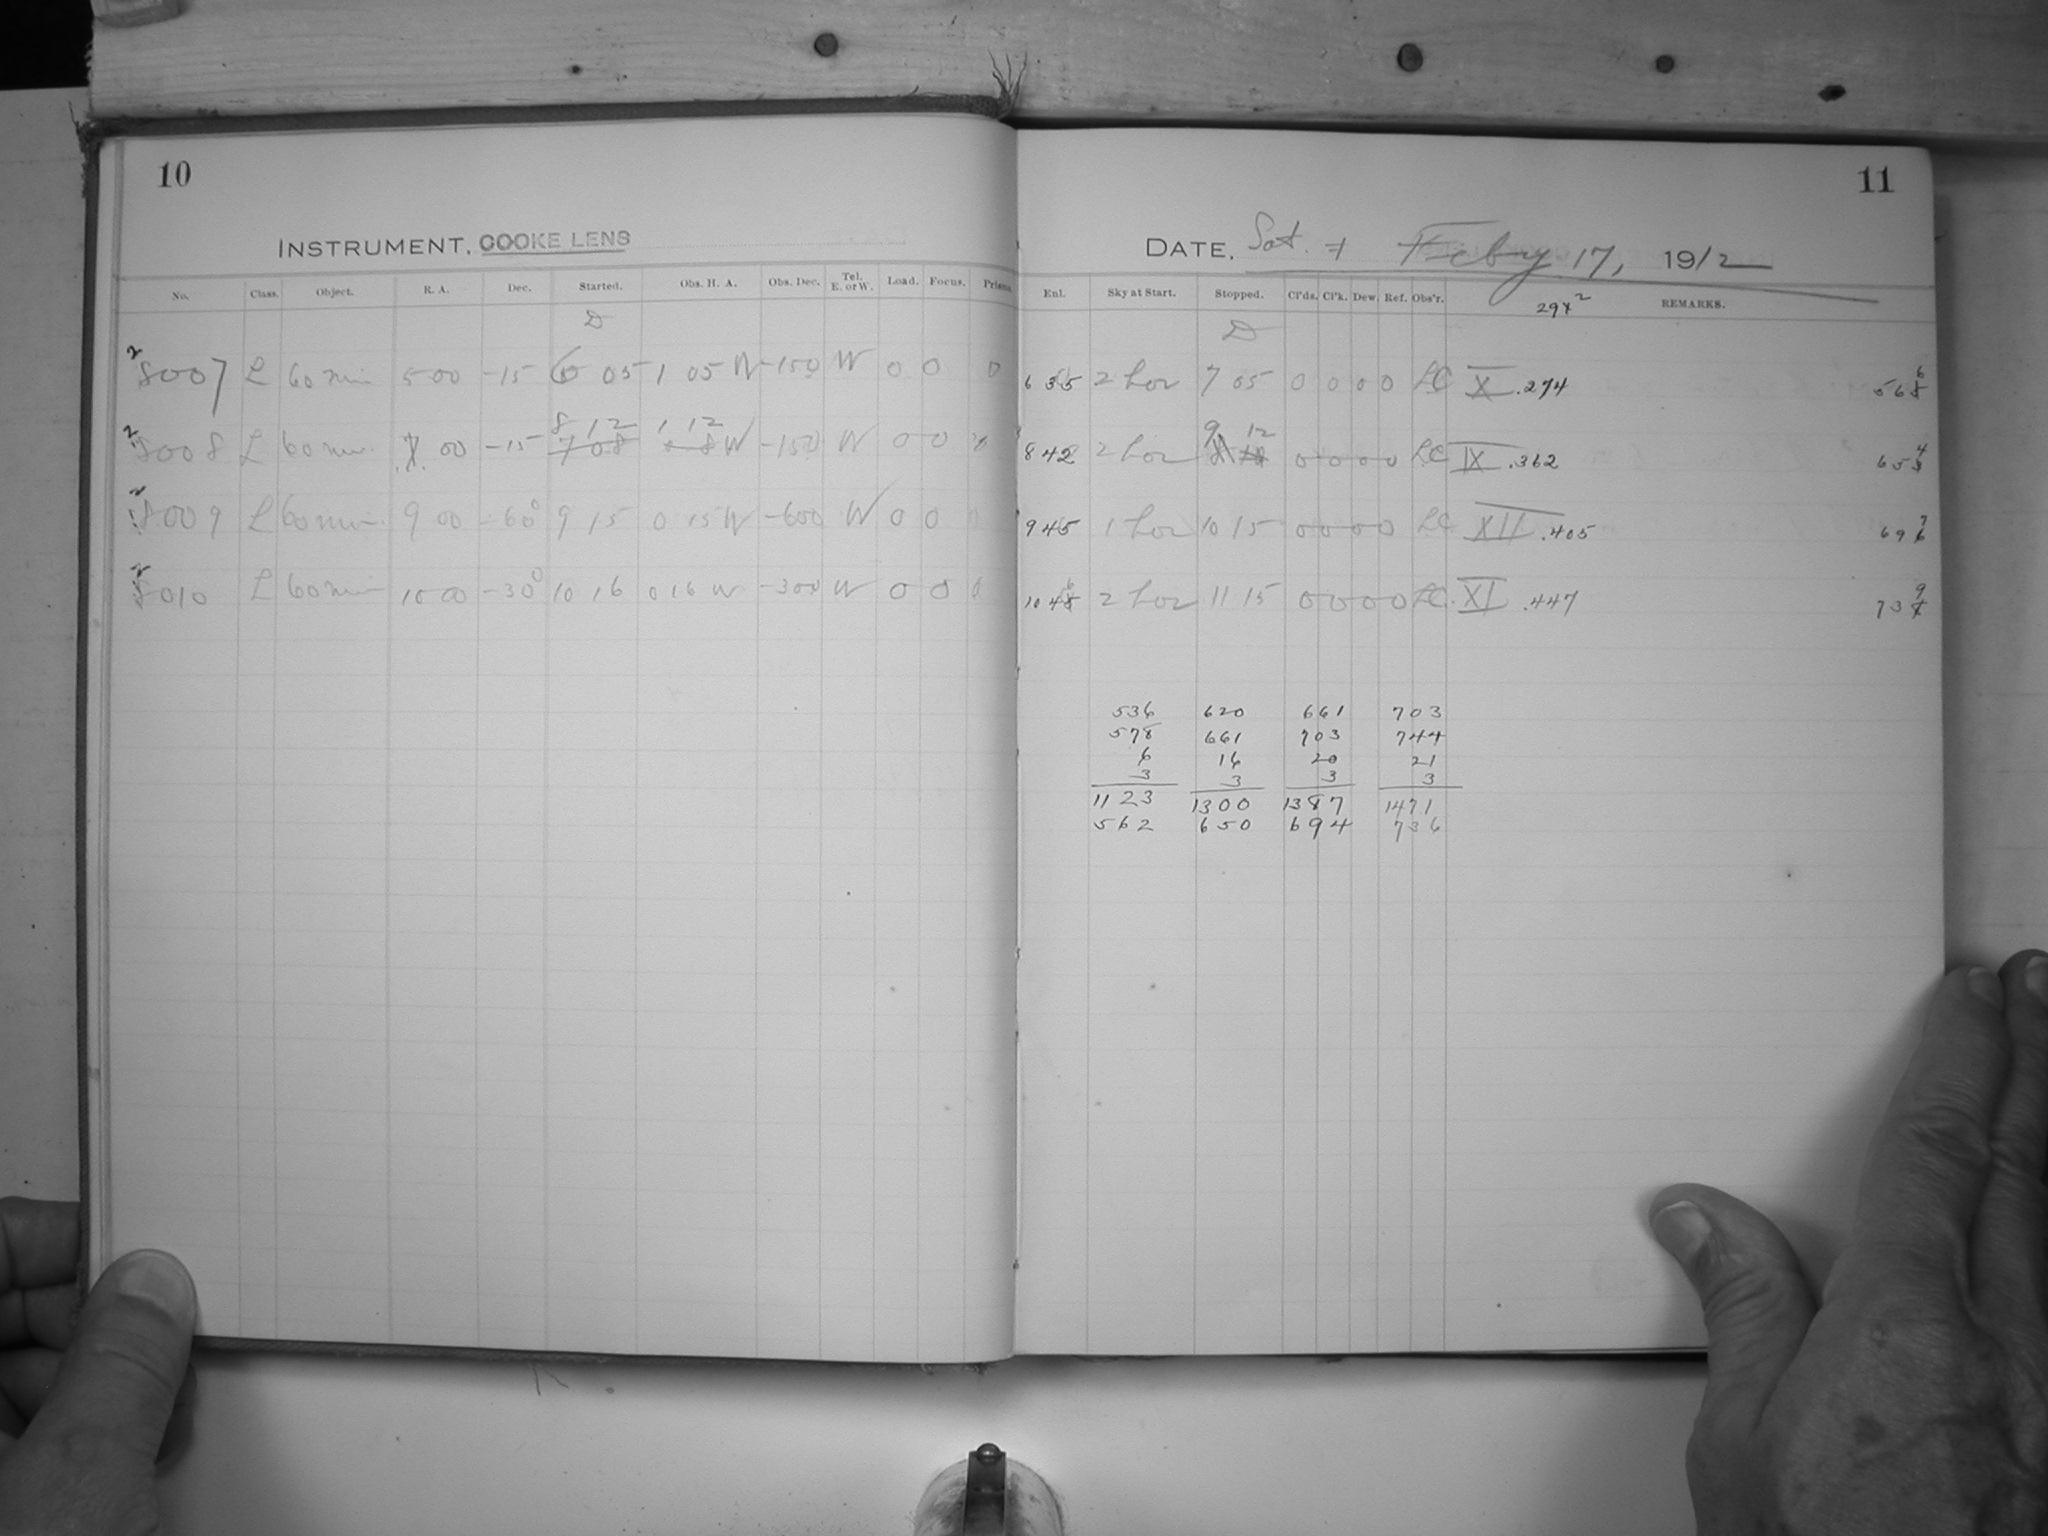 10
INSTRUMENT, COOKE LENS
No. Class. Object. R. A. Dec. Started. Obs. H. A. Obs. Dec. Tel. E. or W. Load. Focus. Prisms
D
2 8007 L 60 min 5 00 -15 6 05 1 05 W -15 0 W 0 0 0
8 12 1 12
2 8008 L 60 min. 7 00 -15 7 08 8 W -15 0 W 0 0
2 8009 L 60 min 9 00 -60° 9 15 0 15 W -60 0 W 0 0
2 8010 L 60 min 10 00 -30° 10 16 0 16 W -30 0 W 0 0 0
11
DATE, Sat. Feby 17, 1912
Enl. Sky at Start. Stopped. Cl'ds. Cl'k. Dew. Ref. Obs'r. 29x² REMARKS.
D
6 35 2 hor 7 05 0 0 0 0 LC X .274 56 6
9 12
8 42 2 hor 0 0 0 0 LC IX .362 65 4
9 45 1 hor 10 15 0 0 0 0 LC XII .405 69 7
10 46 2 hor 11 15 0 0 0 0 LC. XI .447 73 9
536 620 661 703
578 661 703 744
6 16 20 21
3 3 3 3
1123 1300 1387 1471
562 650 694 736